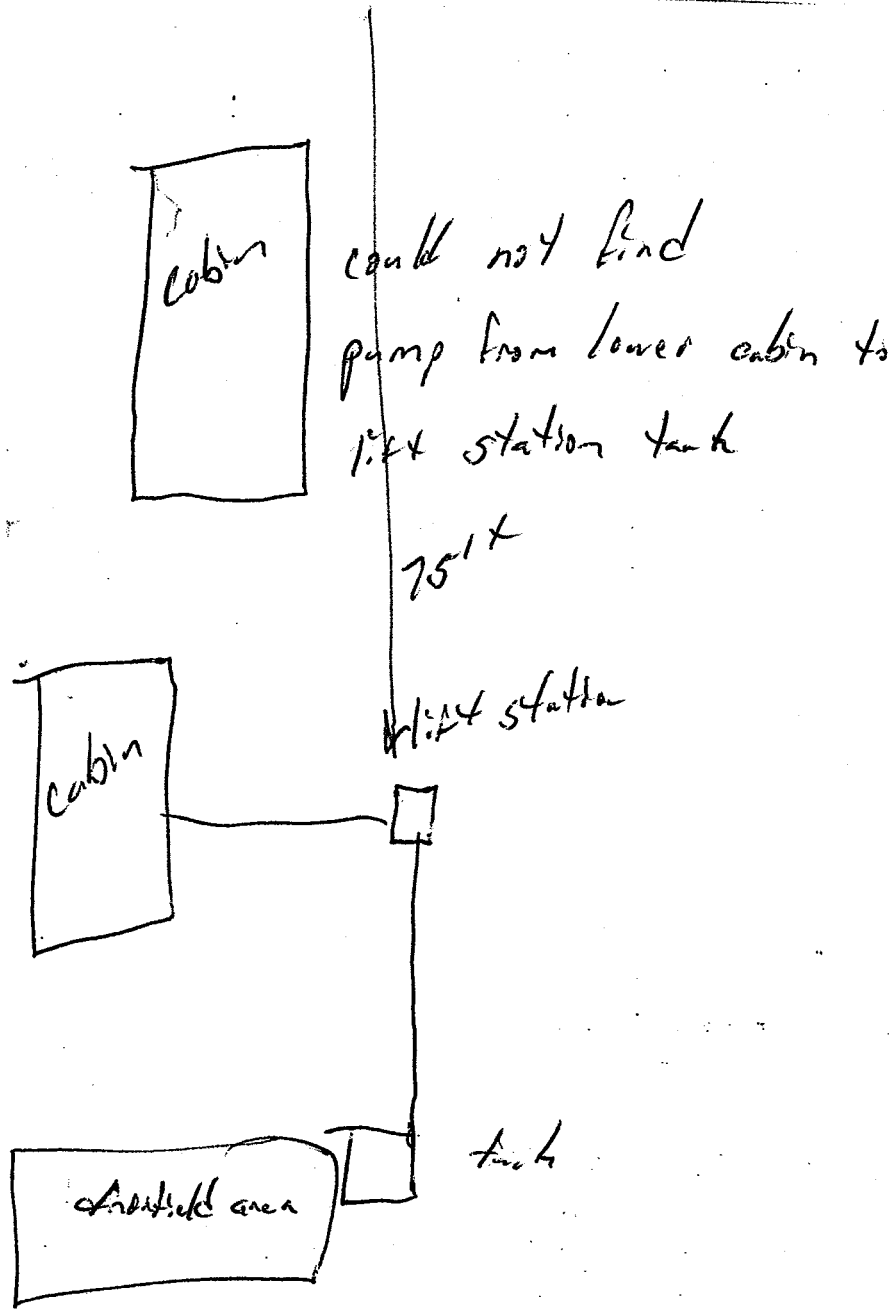 cabin
could not find
pump from lower cabin to
lift station tank
75' ±
lift station
cabin
tank
drainfield area